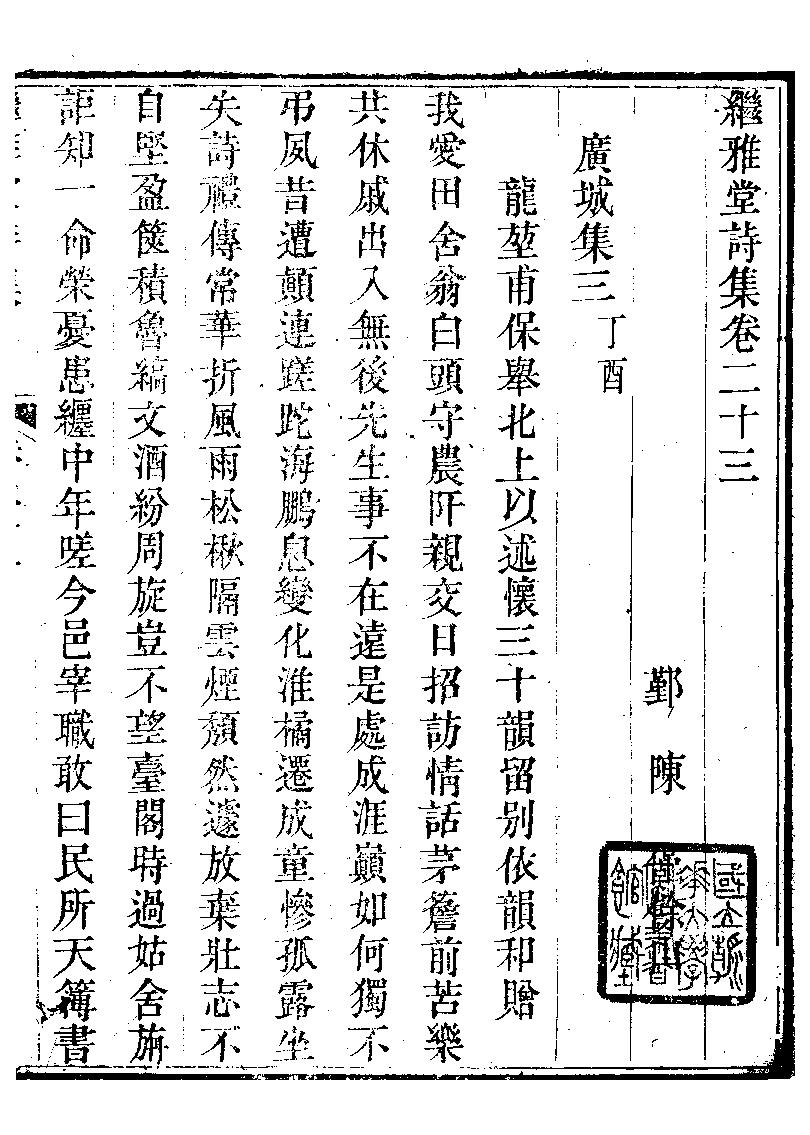 繼雅堂詩集卷二十三
鄞 陳 僅
廣城集三 丁酉
龍堃甫保舉北上以述懷三十韻留別依韻和贈
我愛田舍翁白頭守農阡親交日招訪情話茅簷前苦樂
共休戚出入無後先生事不在遠是處成涯巔如何獨不
弔夙昔遭顛連蹉跎海鵬息變化淮橘遷成童慘孤露坐
失詩禮傳常華折風雨松楸隔雲煙頹然遽放棄壯志不
自堅盈篋積魯縞文酒紛周旋豈不望臺閣時過姑舍旃
詎知一命榮憂患纏中年嗟今邑宰職敢曰民所天簿書